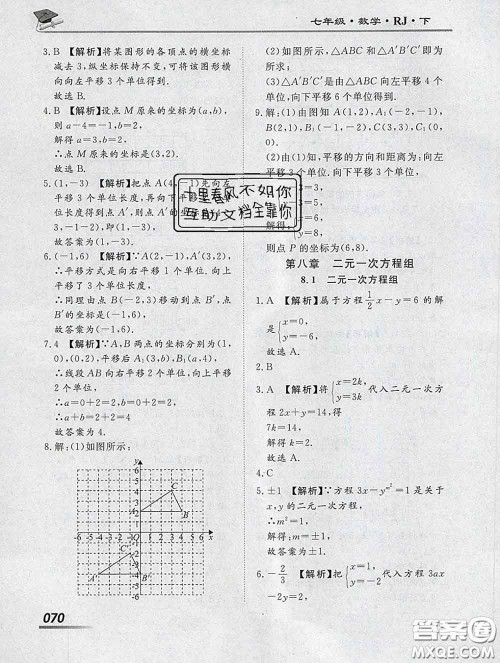 七年级·数学·RJ·下
3. B 【解析】将某图形的各顶点的横坐标
减去3,纵坐标保持不变,可将该图形
向左平移3个单位得到.
故选B.
4. B 【解析】设点M原来的坐标为(a,b),
则a-4=-1,b=2,
解得a=3,b=2,
∴点M原来的坐标是(3,2).
故选B.
5. (1,-3) 【解析】把点A(4,-1)先向左
平移3个单位长度,再向下平移
位长度得到点A′,
3,-1-2),即(1,-3).
故答案为(1,-3).
∴平移方式是向右平移1个单位、向上
平移了3个单位长度,
∴同理由点B(-2,3)移动到点B′,点
B′的坐标为(-1,6).
故答案为(-1,6).
7. 4 【解析】∵A,B两点的坐标分别为(1,
0),(0,2),平移后A₁(3,b),B₁(a,4),
∴线段AB向右平移2个单位,向上平
移2个单位,
∴a=0+2=2,b=0+2=2,
∴a+b=2+2=4.
故答案为4.
8. 解:(1)如图所示:
070
(2)如图所示,△ABC和△A′B′C′即为
所求;
(3)△A′B′C′是由△ABC向左平移4个
单位,向下平移6个单位得到.
9. 解:(1)由图知A(1,2),A₁(-2,-1),
B(2,1),B₁(-1,-2),C(3,3),C₁(0,
0).
(2)由(1)知,平移的方向和距离为;向左
则点P的坐标为(6,8).
十里春风不如你
互助文档全靠你
第八章 二元一次方程组
8.1 二元一次方程组
1. A 【解析】属于方程1/2x-y=6的
是{x=0, y=-6,
故选A.
2. B
3. A 【解析】将{x=2k, y=3k,代入二元一次方
程2x+y=14,得
7k=14,
解得k=2.
故选A.
4. C
5. ±1 【解析】∵方程3x-y^{m²}=1是关于
x,y的二元一次方程,
∴m²=1,
解得:m=±1,
故答案为±1.
6. -2/3 【解析】把{x=1, y=-2代入方程3ax
-2y=2,得